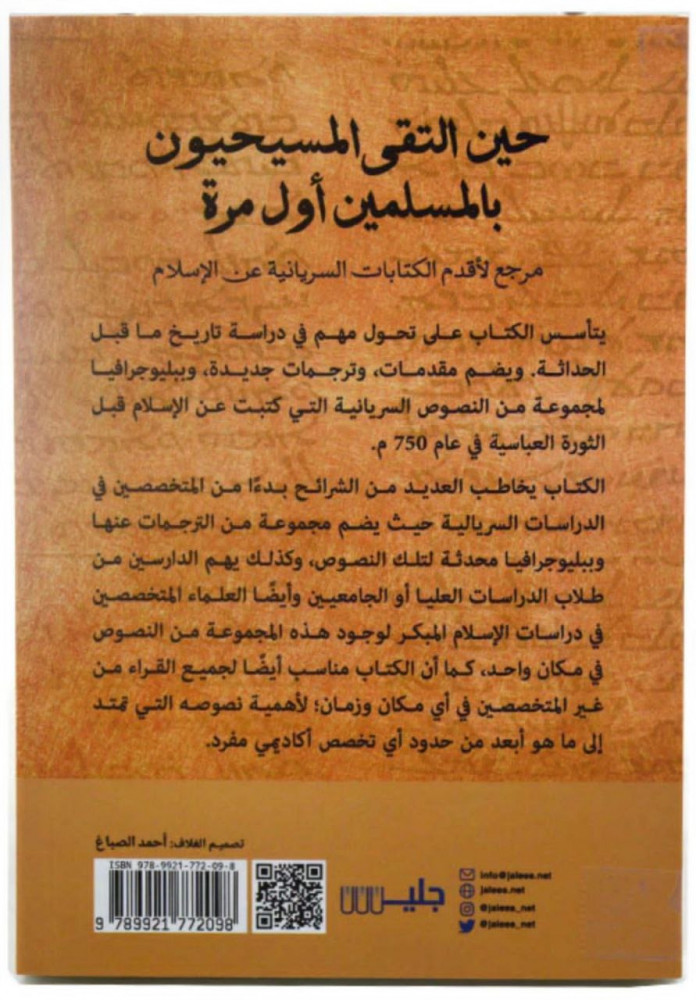 حين التقى المسيحيون
بالمسلمين أول مرة
مرجع لأقدم الكتابات السريانية عن الإسلام
يتأسس الكتاب على تحول مهم في دراسة تاريخ ما قبل
الحداثة. ويضم مقدمات، وترجمات جديدة، وببليوجرافيا
لمجموعة من النصوص السريانية التي كتبت عن الإسلام قبل
الثورة العباسية في عام 750 م.
الكتاب يخاطب العديد من الشرائح بدءًا من المتخصصين في
الدراسات السريالية حيث يضم مجموعة من الترجمات عنها
وببليوجرافيا محدثة لتلك النصوص، وكذلك يهم الدارسين من
طلاب الدراسات العليا أو الجامعيين وأيضًا العلماء المتخصصين
في دراسات الإسلام المبكر لوجود هذه المجموعة من النصوص
في مكان واحد، كما أن الكتاب مناسب أيضًا لجميع القراء من
غير المتخصصين في أي مكان وزمان؛ لأهمية نصوصه التي تمتد
إلى ما هو أبعد من حدود أي تخصص أكاديمي مفرد.
تصميم الغلاف: أحمد الصباغ
ISBN 978-9921-772-09-8
9 789921 772098
جليس
info@jalees.net
jalees.net
@jalees_net
@jalees_net